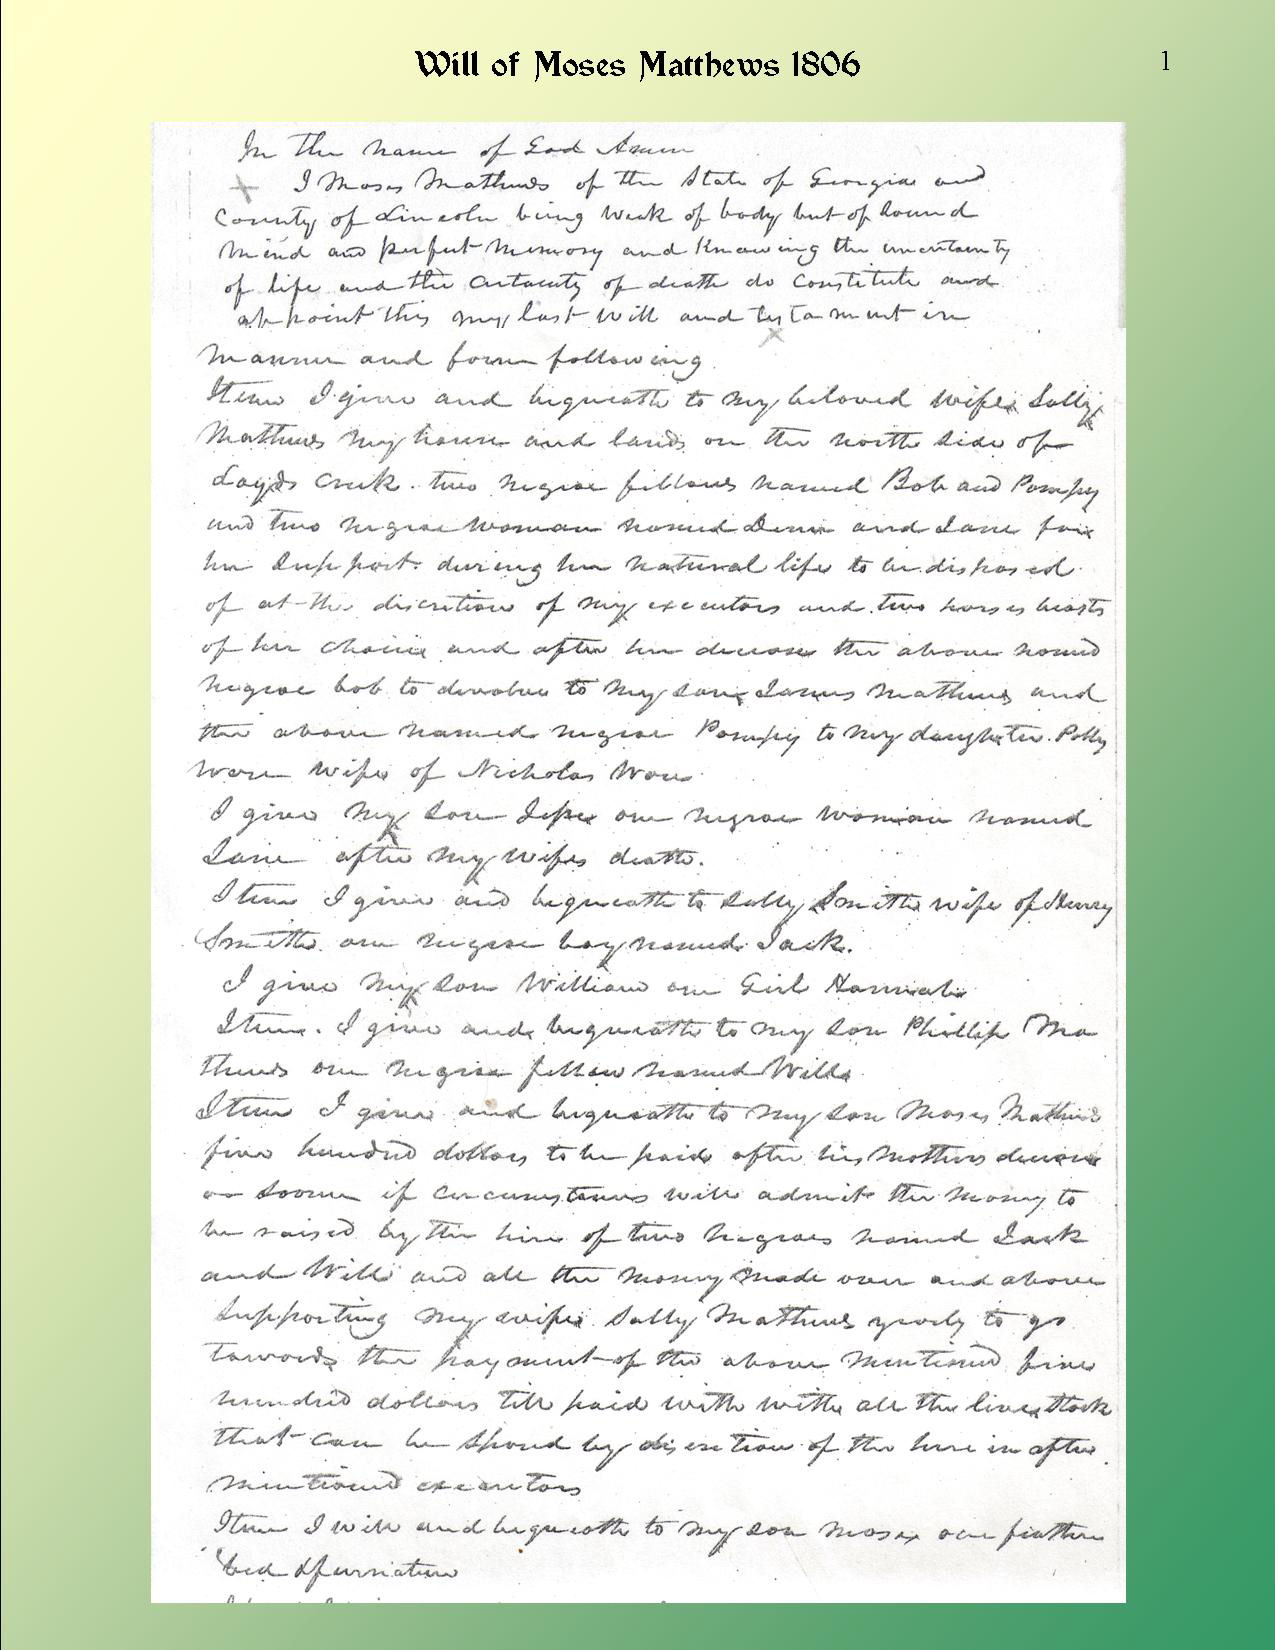 Will of Moses Matthews 1806
1
In the name of God Amen
I Moses Mathews of the State of Georgia and
County of Lincoln being weak of body but of sound
mind and perfect memory and knowing the uncertainty
of life and the certainty of death do constitute and
appoint this my last will and testament in
manner and form following
Item I give and bequeath to my beloved wife Sally
Mathews my house and lands on the north side of
Loyds Creek. two negroe fellows named Bob and Pompy
and two negroe woman named and Jane for
her support. during her natural life to be disposed
of at the discretion of my executors and two horses beasts
of her choice and after her decease the above named
negroe bob to devolve to my son James Mathews and
the above named negroe Pompy to my daughter Polly
Ware wife of Nicholas Ware
I give my son one negroe woman named
Jane after my wifes death.
Item I give and bequeath to Sally Smith wife of Henry
Smith one negroe boy named Jack.
I give my son William one Girl Hannah
Item. I give and bequeath to my son Phillip Ma
thews one negroe fellow named Will
Item I give and bequeath to my son Moses Mathews
five hundred dollars to be paid after his mothers decease
or sooner if circumstances will admit the money to
be raised by the hire of two negroes named Jack
and Will and all the money made over and above
supporting my wife Sally Mathews yearly to go
towards the payment of the above mentioned five
hundred dollars till paid with with all the live stock
that can be spared by discretion of the here in after
mentioned executors
Item I will and bequeath to my son Moses one feather
bed & furniture